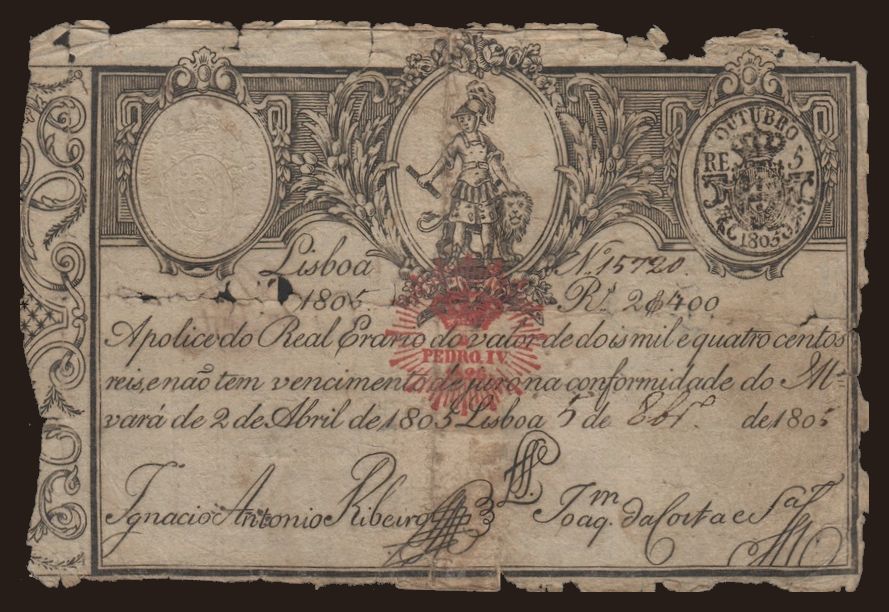 OUTUBRO
RE 5
1805
Lisboa Nº 15720.
1805 Rs. 2$400
Apolice do Real Erario do valor de dois mil e quatro centos
reis, e não tem vencimento de juro na conformidade do Al-
vará de 2 de Abril de 1805 Lisboa 5 de 8br. de 1805
PEDRO IV
Ignacio Antonio Ribeiro
Joaq.m da Costa e Sa